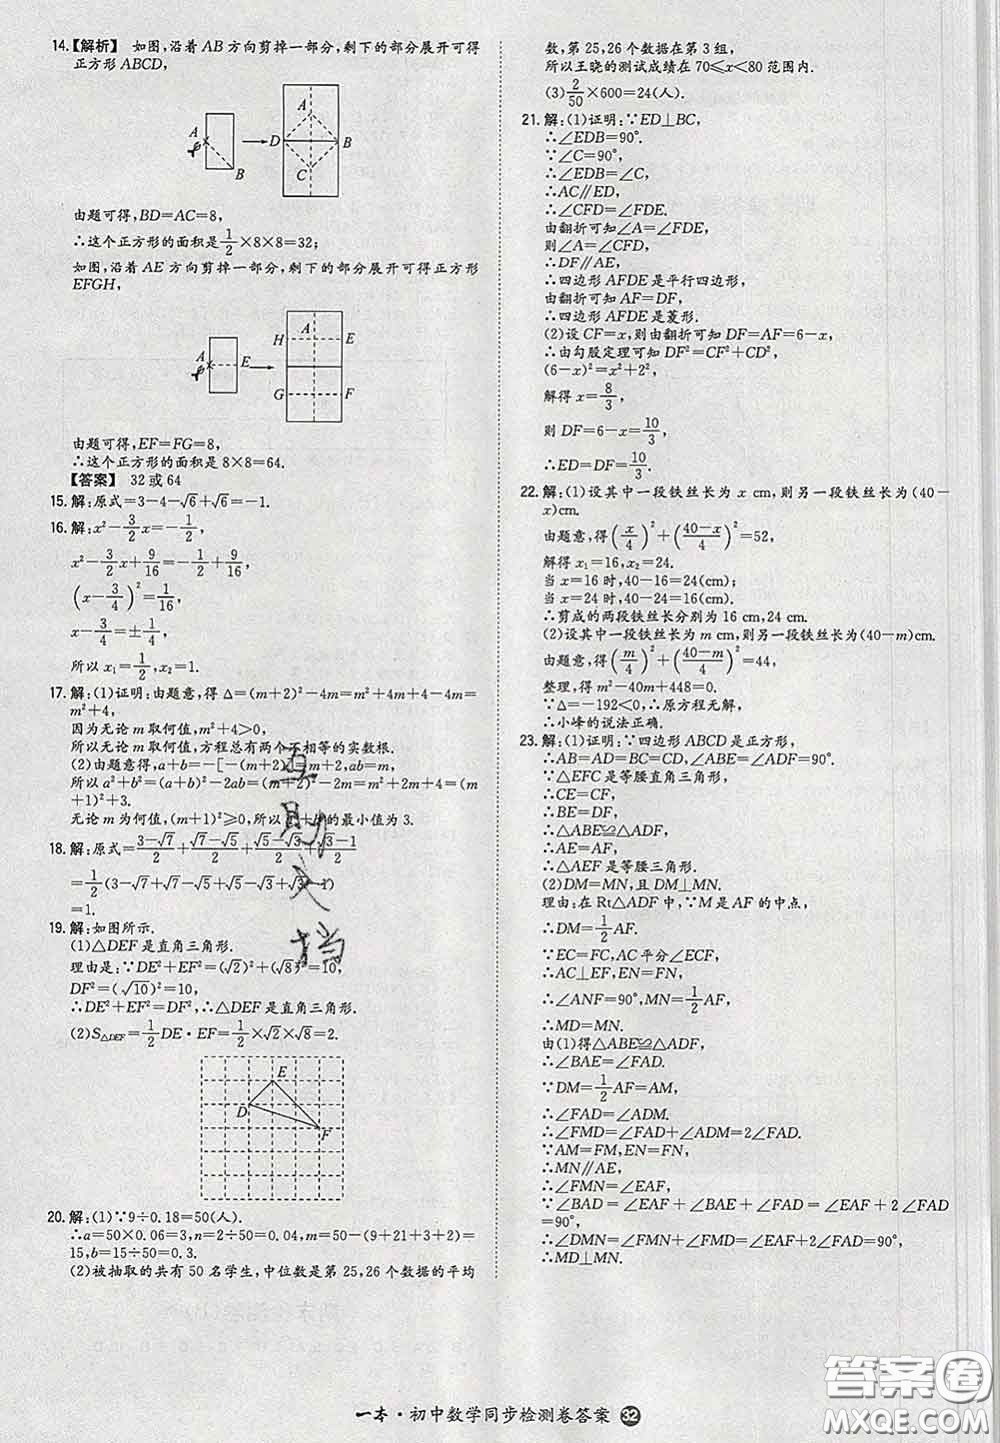 14.【解析】 如图,沿着AB方向剪掉一部分,剩下的部分展开可得
正方形ABCD,
A
B
A
D
B
C
由题可得,BD=AC=8,
∴这个正方形的面积是1/2×8×8=32;
如图,沿着AE方向剪掉一部分,剩下的部分展开可得正方形
EFGH,
A
E
A
H
E
G
F
由题可得,EF=FG=8,
∴这个正方形的面积是8×8=64.
【答案】 32或64
15.解:原式=3-4-√6+√6=-1.
16.解:x²-3/2x=-1/2,
x²-3/2x+9/16=-1/2+9/16,
(x-3/4)²=1/16,
x-3/4=±1/4,
所以x₁=1/2,x₂=1.
17.解:(1)证明:由题意,得Δ=(m+2)²-4m=m²+4m+4-4m=
m²+4,
因为无论m取何值,m²+4>0,
所以无论m取何值,方程总有两个不相等的实数根.
(2)由题意得,a+b=-[-(m+2)]=m+2,ab=m,
所以a²+b²=(a+b)²-2ab=(m+2)²-2m=m²+2m+4=(m
+1)²+3.
无论m为何值,(m+1)²≥0,所以a²+b²的最小值为3.
18.解:原式=(3-√7)/2+(√7-√5)/2+(√5-√3)/2+(√3-1)/2
=1/2(3-√7+√7-√5+√5-√3+√3-1)
=1.
19.解:如图所示.
(1)△DEF是直角三角形.
理由是:∵DE²+EF²=(√2)²+(√8)²=10,
DF²=(√10)²=10,
∴DE²+EF²=DF²,∴△DEF是直角三角形.
(2)S△DEF=1/2DE·EF=1/2×√2×√8=2.
E
D
F
20.解:(1)∵9÷0.18=50(人).
∴a=50×0.06=3,n=2÷50=0.04,m=50-(9+21+3+2)=
15,b=15÷50=0.3.
(2)被抽取的共有50名学生,中位数是第25,26个数据的平均
数,第25,26个数据在第3组,
所以王晓的测试成绩在70≤x<80范围内.
(3)2/50×600=24(人).
21.解:(1)证明:∵ED⊥BC,
∴∠EDB=90°.
∵∠C=90°,
∴∠EDB=∠C,
∴AC∥ED,
∴∠CFD=∠FDE.
由翻折可知∠A=∠FDE,
则∠A=∠CFD,
∴DF∥AE,
∴四边形AFDE是平行四边形,
由翻折可知AF=DF,
∴四边形AFDE是菱形.
(2)设CF=x,则由翻折可知DF=AF=6-x,
∴由勾股定理可知DF²=CF²+CD²,
(6-x)²=x²+2²,
解得x=8/3,
则DF=6-x=10/3,
∴ED=DF=10/3.
22.解:(1)设其中一段铁丝长为x cm,则另一段铁丝长为(40-
x)cm.
由题意,得(x/4)²+((40-x)/4)²=52,
解得x₁=16,x₂=24.
当x=16时,40-16=24(cm);
当x=24时,40-24=16(cm).
∴剪成的两段铁丝长分别为16 cm,24 cm.
(2)设其中一段铁丝长为m cm,则另一段铁丝长为(40-m)cm.
由题意,得(m/4)²+((40-m)/4)²=44,
整理,得m²-40m+448=0.
∵Δ=-192<0,∴原方程无解,
∴小峰的说法正确.
23.解:(1)证明:∵四边形ABCD是正方形,
∴AB=AD=BC=CD,∠ABE=∠ADF=90°.
∵△EFC是等腰直角三角形,
∴CE=CF,
∴BE=DF,
∴△ABE≌△ADF,
∴AE=AF,
∴△AEF是等腰三角形.
(2)DM=MN,且DM⊥MN.
理由:在Rt△ADF中,∵M是AF的中点,
∴DM=1/2AF.
∵EC=FC,AC平分∠ECF,
∴AC⊥EF,EN=FN,
∴∠ANF=90°,MN=1/2AF,
∴MD=MN.
由(1)得△ABE≌△ADF,
∴∠BAE=∠FAD.
∵DM=1/2AF=AM,
∴∠FAD=∠ADM.
∴∠FMD=∠FAD+∠ADM=2∠FAD.
∵AM=FM,EN=FN,
∴MN∥AE,
∴∠FMN=∠EAF,
∵∠BAD=∠EAF+∠BAE+∠FAD=∠EAF+2∠FAD
=90°,
∴∠DMN=∠FMN+∠FMD=∠EAF+2∠FAD=90°,
∴MD⊥MN.
互
助
文
档
一本·初中数学同步检测卷答案 32
答案圈
MXQE.COM